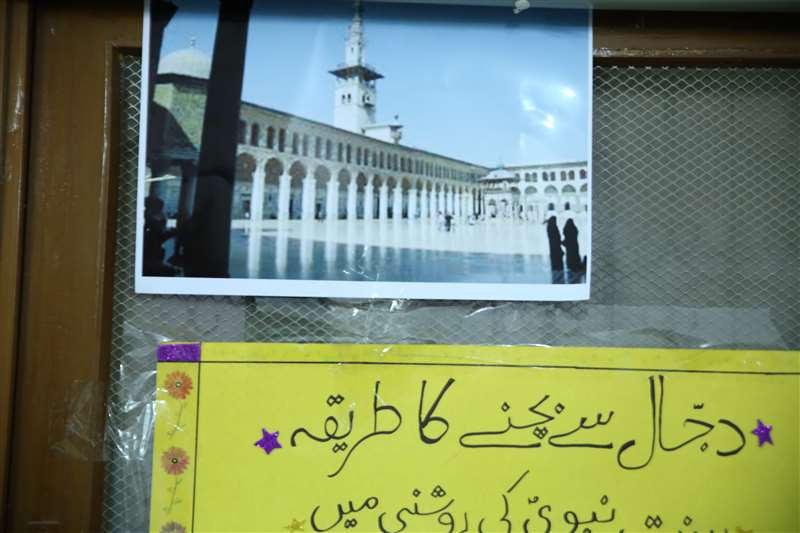 دجّال سے بچنے کا طریقہ
نبویؐ کی روشنی میں